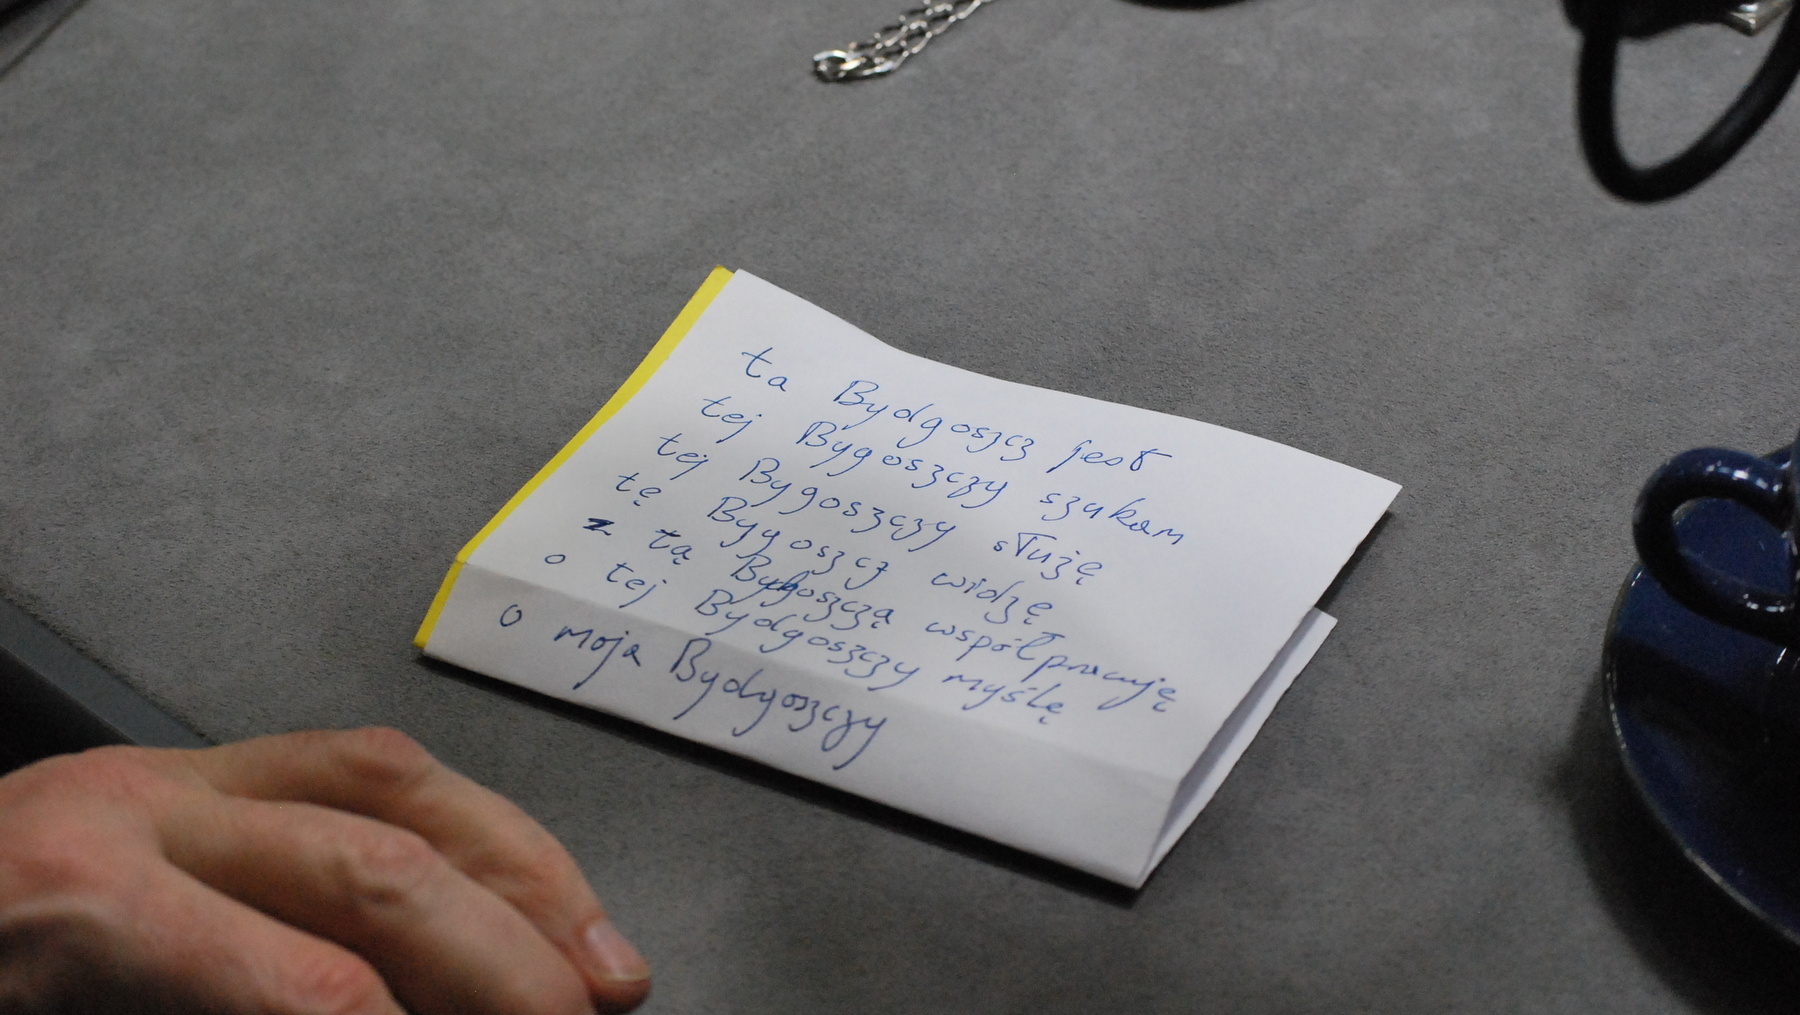 ta Bydgoszcz jest
tej Bygoszczy szukam
tej Bygoszczy służę
tę Bygoszcz widzę
z tą Bygoszczą współpracuję
o tej Bydgoszczy myślę
o moja Bydgoszczy